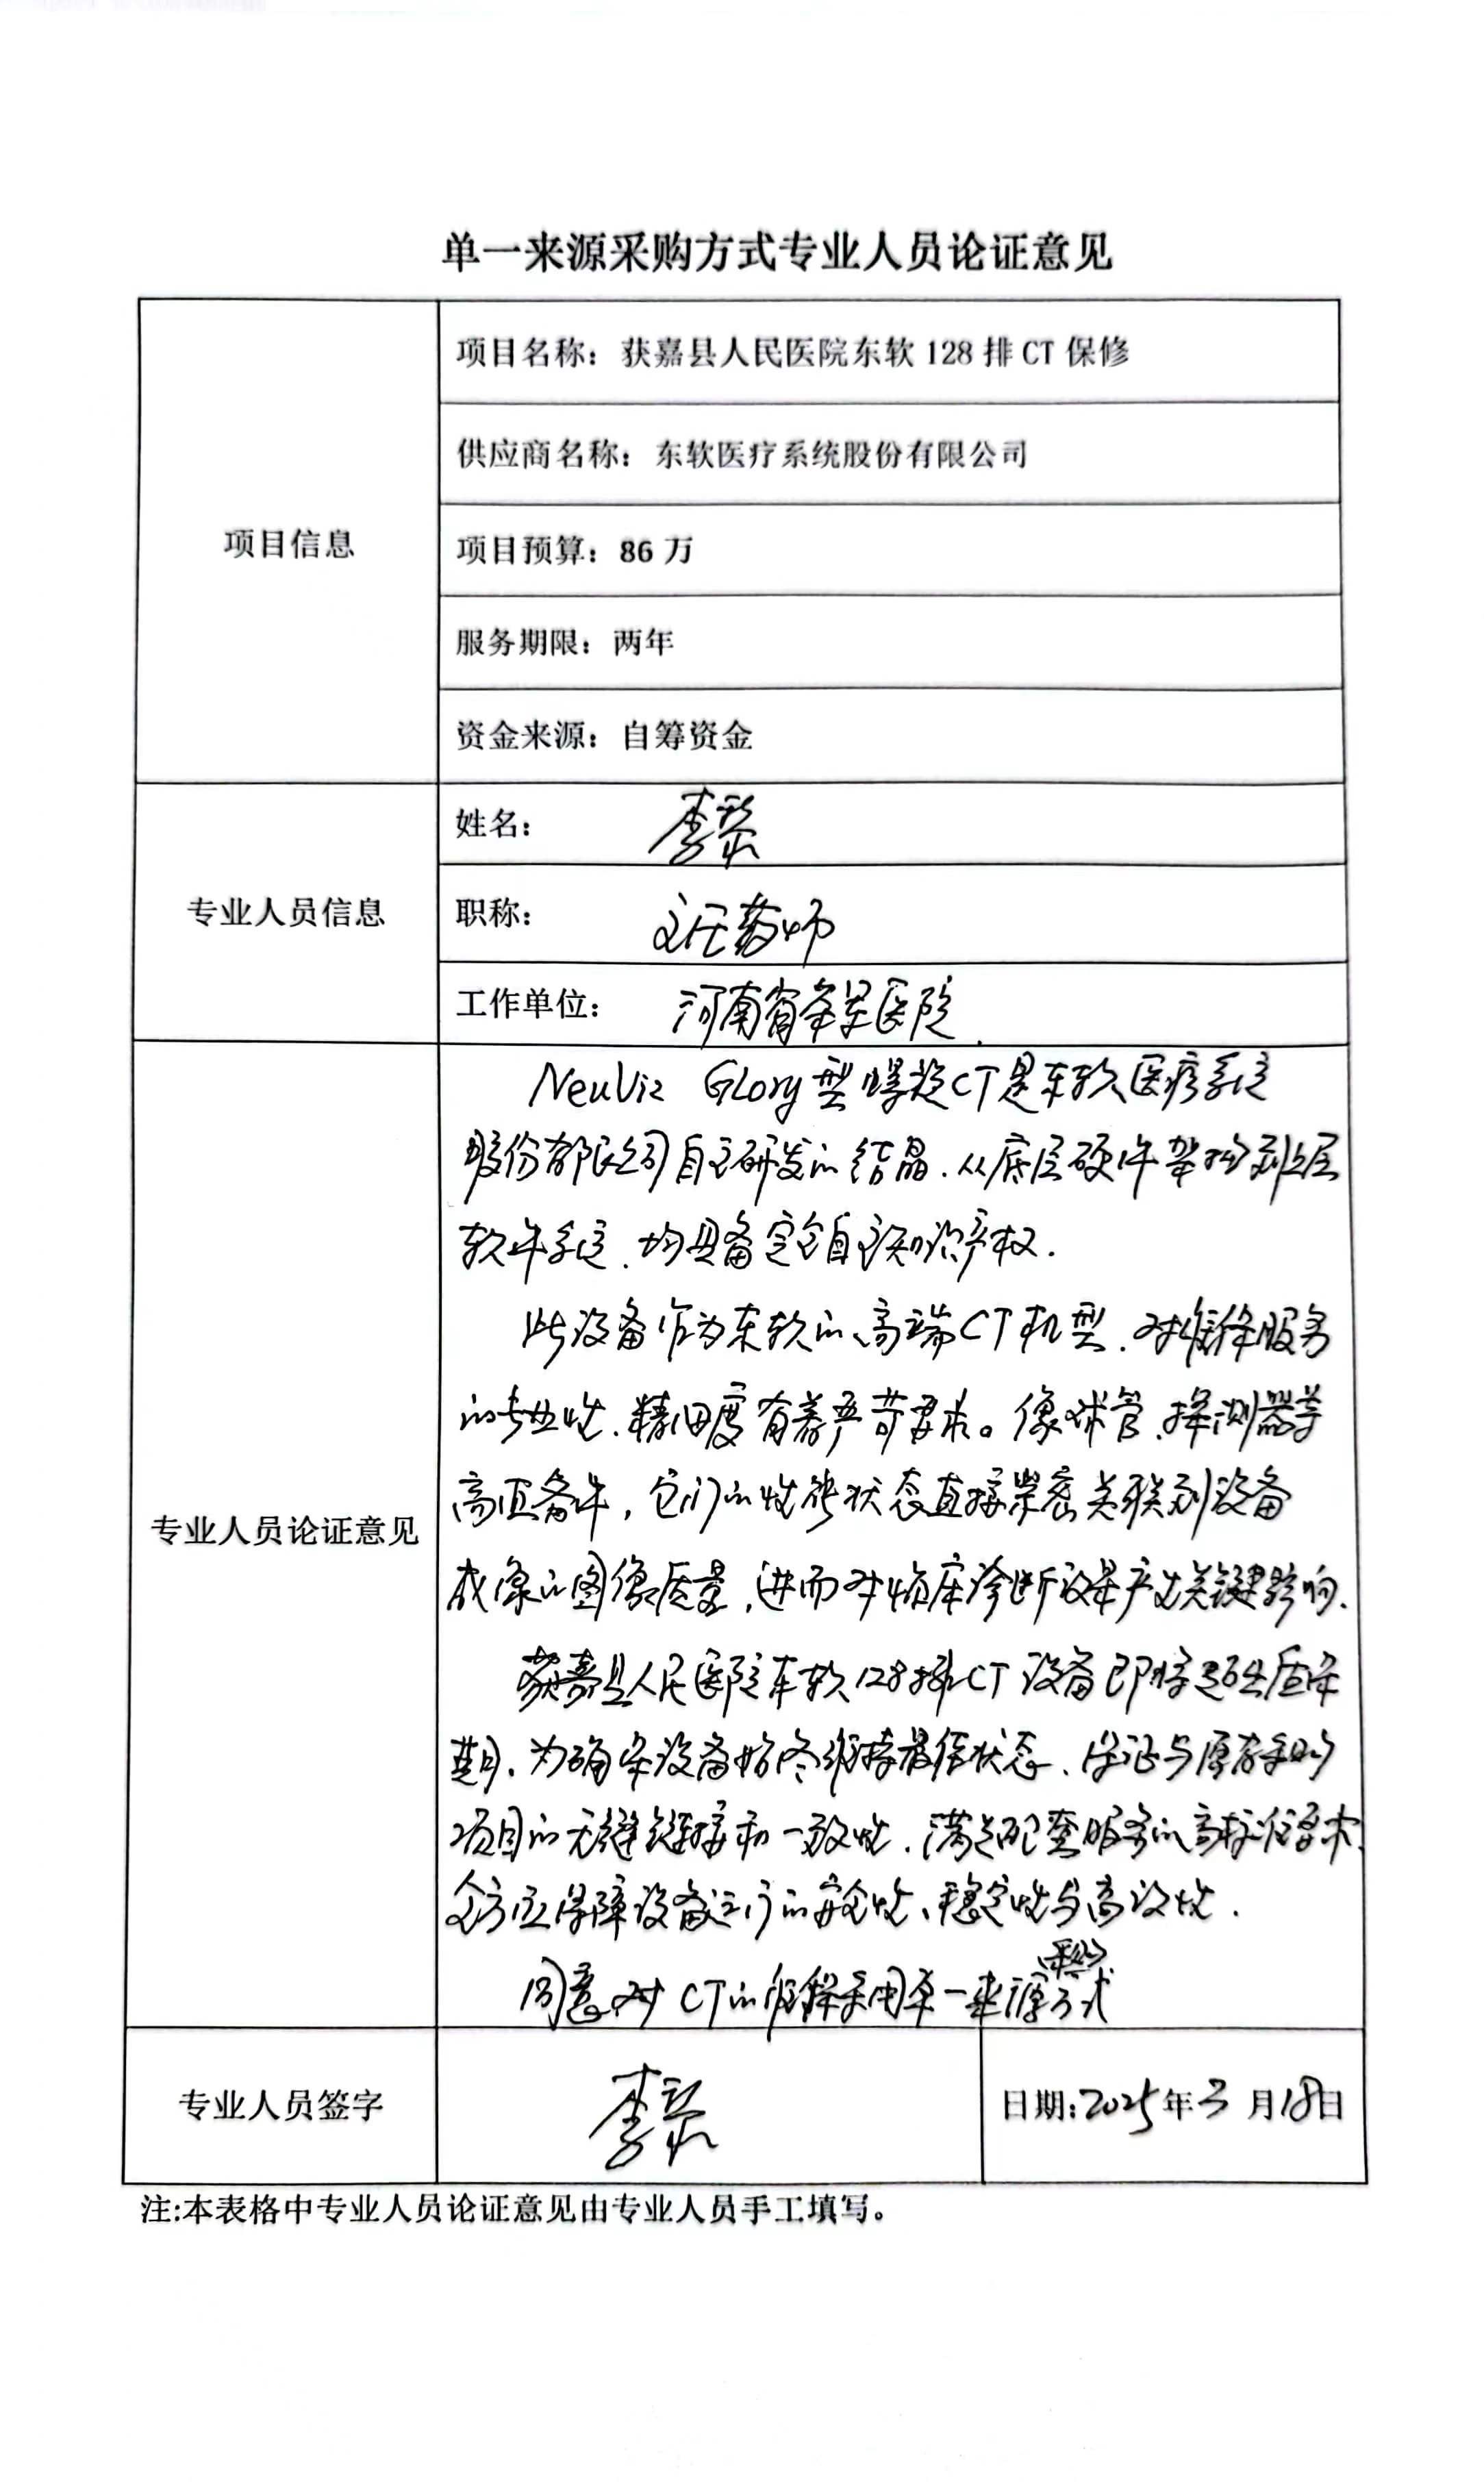 单一来源采购方式专业人员论证意见
项目信息
项目名称：获嘉县人民医院东软 128 排 CT 保修
供应商名称：东软医疗系统股份有限公司
项目预算：86 万
服务期限：两年
资金来源：自筹资金
专业人员信息
姓名：李
职称：主任药师
工作单位：河南省荣军医院.
专业人员论证意见
NeuViz Glory型螺旋CT是东软医疗系统
股份有限公司自主研发的结晶.从底层硬件架构到上层
软件系统.均具备完全自主知识产权.
此设备作为东软的高端CT机型.对维修服务
的专业性.精细度有着严苛要求。像球管.探测器等
高值备件，它们的性能状态直接紧密关联到设备
成像的图像质量,进而对临床诊断效果产生关键影响.
获嘉县人民医院东软128排CT设备即将超出质保
期.为确保设备始终维持最佳状态、保证与原有采购
项目的无缝链接和一致性.满足配套服务的高标准要求.
全方位保障设备运行的安全性、稳定性与高效性.
同意对CT的维保采用单一来源采购方式
专业人员签字
李
日期:2025年3月18日
注:本表格中专业人员论证意见由专业人员手工填写。